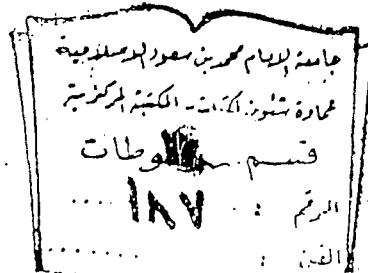 جامعة الامام محمد بن سعود الاسلامية
عمادة شئون المكتبات - المكتبة المركزية
قسم المخطوطات
الرقم : ١٨٧
الفن :